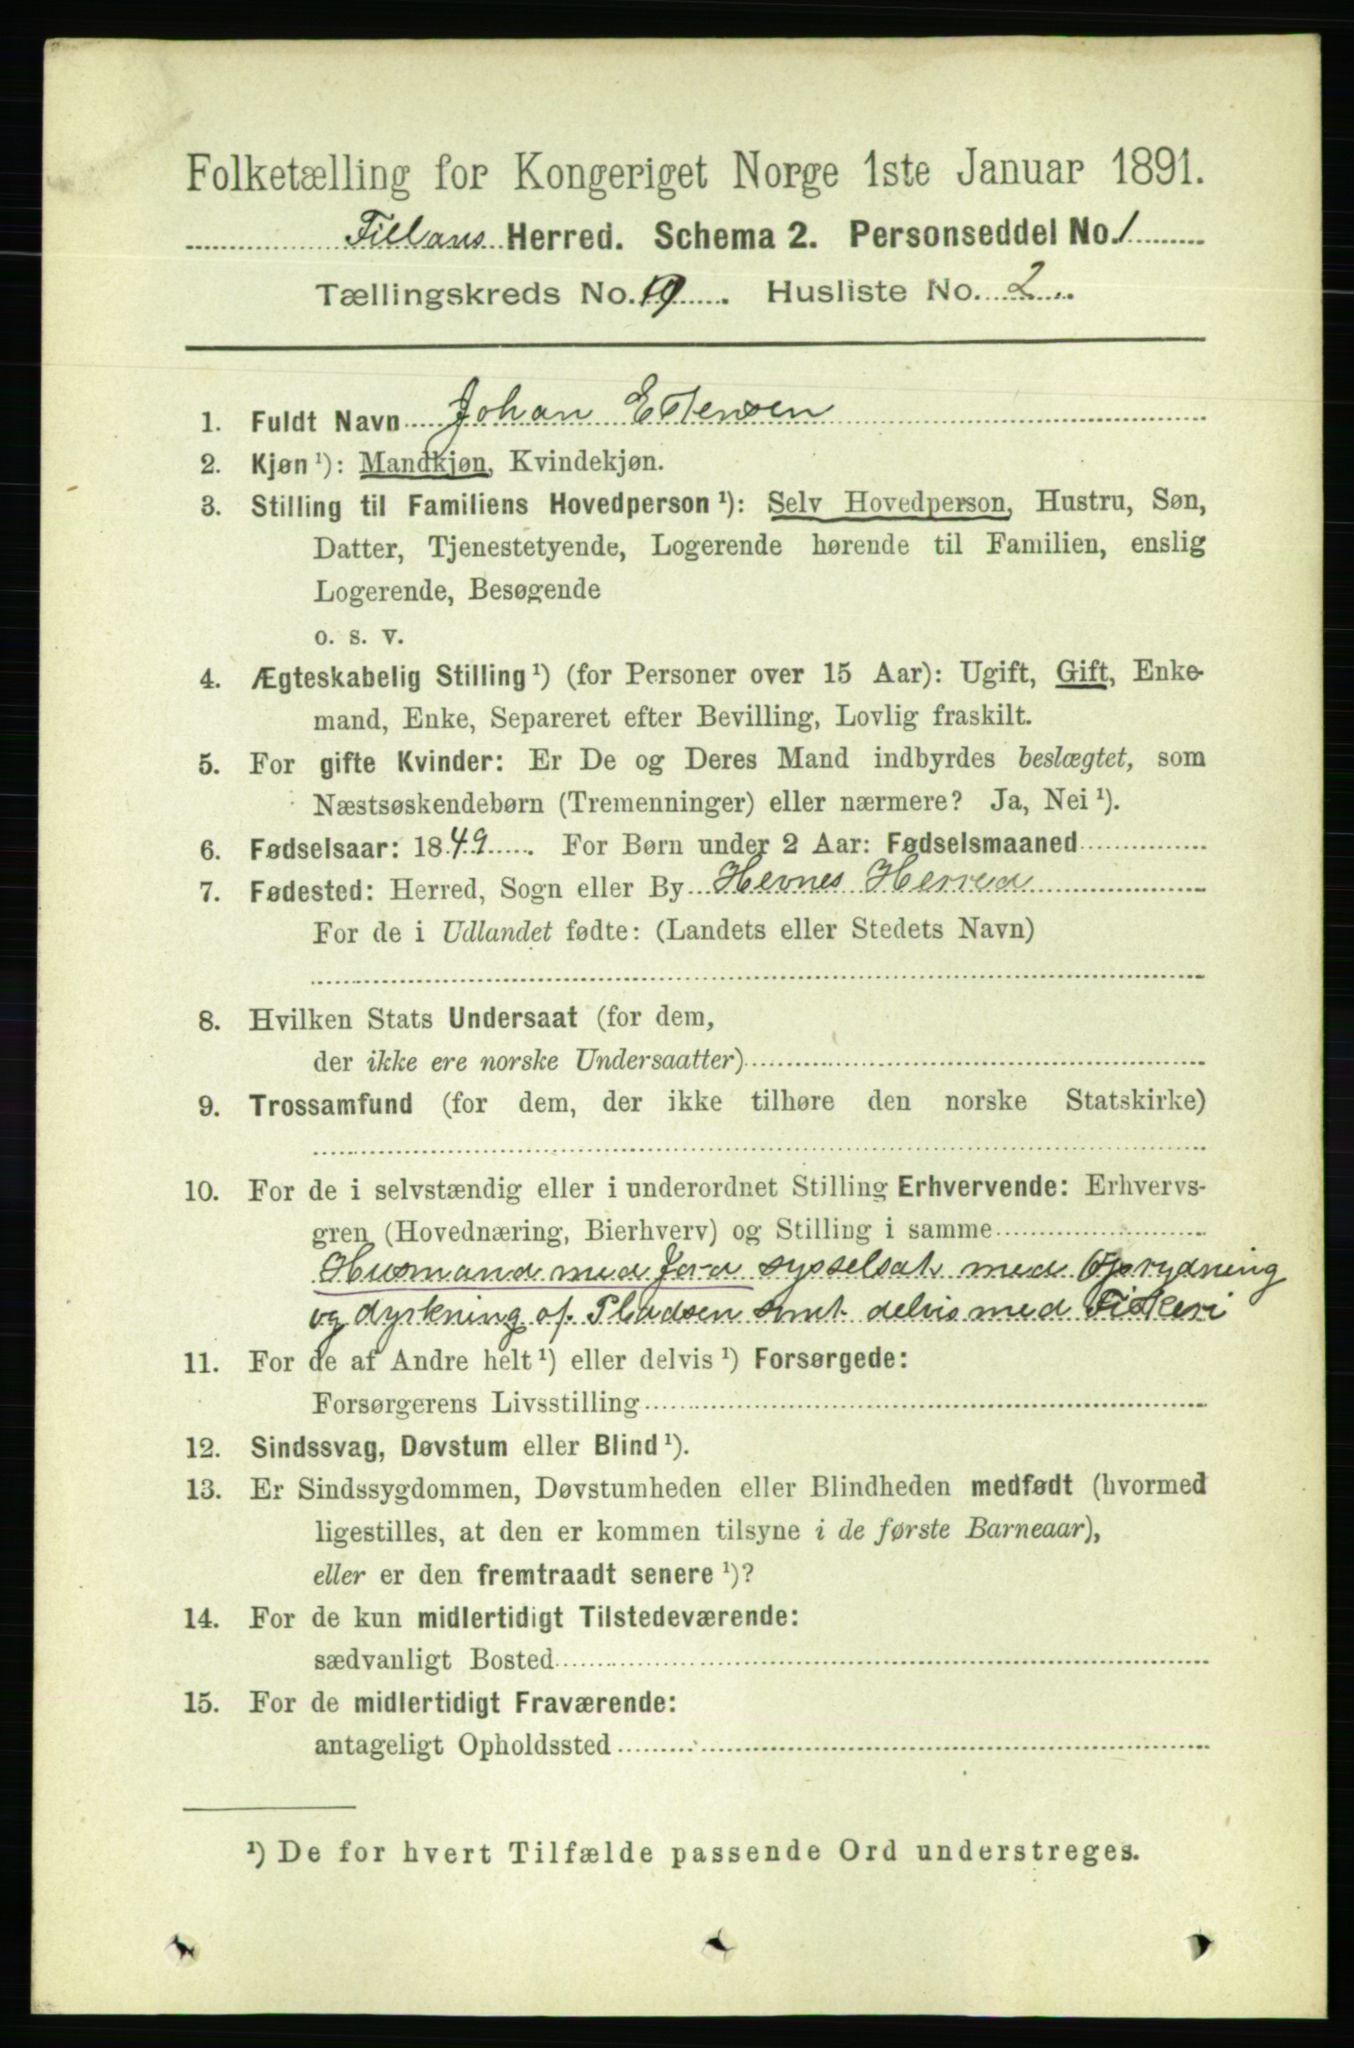 Folketælling for Kongeriget Norge 1ste Januar 1891.
Fillans Herred. Schema 2. Personseddel No. 1
Tællingskreds No. 10. Husliste No. 2
1. Fuldt Navn Johan Estensen
2. Kjøn ¹): Mandkjøn, Kvindekjøn.
3. Stilling til Familiens Hovedperson ¹): Selv Hovedperson, Hustru, Søn,
Datter, Tjenestetyende, Logerende hørende til Familien, enslig
Logerende, Besøgende
o. s. v.
4. Ægteskabelig Stilling ¹) (for Personer over 15 Aar): Ugift, Gift, Enke-
mand, Enke, Separeret efter Bevilling, Lovlig fraskilt.
5. For gifte Kvinder: Er De og Deres Mand indbyrdes beslægtet, som
Næstsøskendebørn (Tremenninger) eller nærmere? Ja, Nei ¹).
6. Fødselsaar: 1849. For Børn under 2 Aar: Fødselsmaaned
7. Fødested: Herred, Sogn eller By Hevnes Herred
For de i Udlandet fødte: (Landets eller Stedets Navn)
8. Hvilken Stats Undersaat (for dem,
der ikke ere norske Undersaatter)
9. Trossamfund (for dem, der ikke tilhøre den norske Statskirke)
10. For de i selvstændig eller i underordnet Stilling Erhvervende: Erhvervs-
gren (Hovednæring, Bierhverv) og Stilling i samme
Husmand med Jord sysselsat med Oprydning
og dyrkning af Pladsen samt delvis med Fiskeri
11. For de af Andre helt ¹) eller delvis ¹) Forsørgede:
Forsørgerens Livsstilling
12. Sindssvag, Døvstum eller Blind ¹).
13. Er Sindssygdommen, Døvstumheden eller Blindheden medfødt (hvormed
ligestilles, at den er kommen tilsyne i de første Barneaar),
eller er den fremtraadt senere ¹)?
14. For de kun midlertidigt Tilstedeværende:
sædvanligt Bosted
15. For de midlertidigt Fraværende:
antageligt Opholdssted
¹) De for hvert Tilfælde passende Ord understreges.